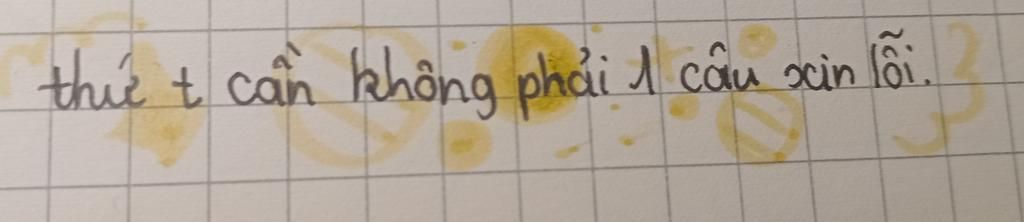 thứ t cần không phải 1 câu xin lỗi.